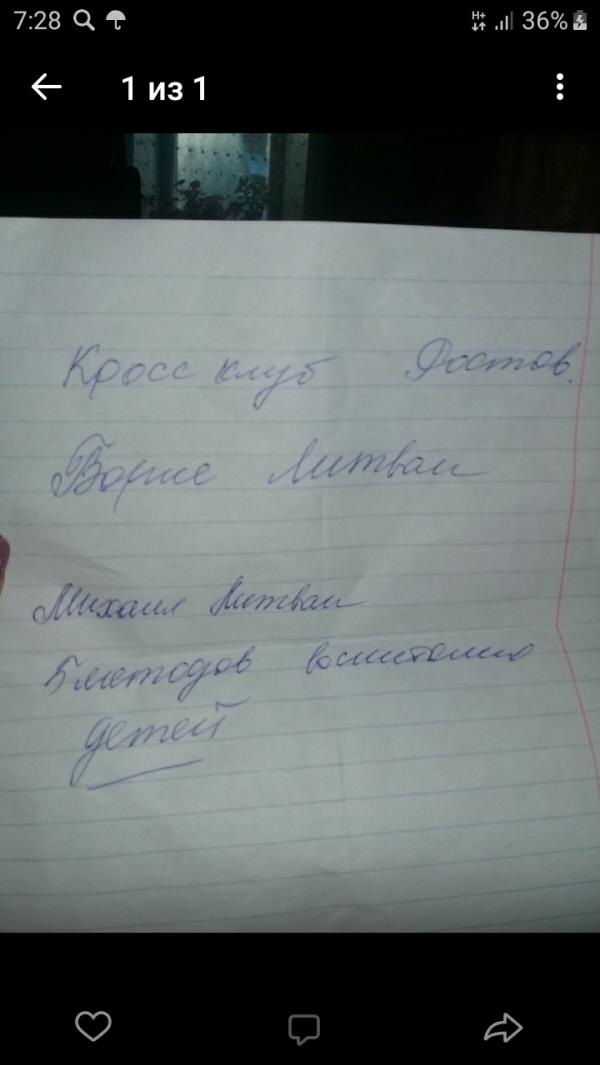 7:28 H+ 36%
1 из 1
Кросс клуб Ростов.
Борис Литвак
Михаил Литвак
5 методов воспитания
детей